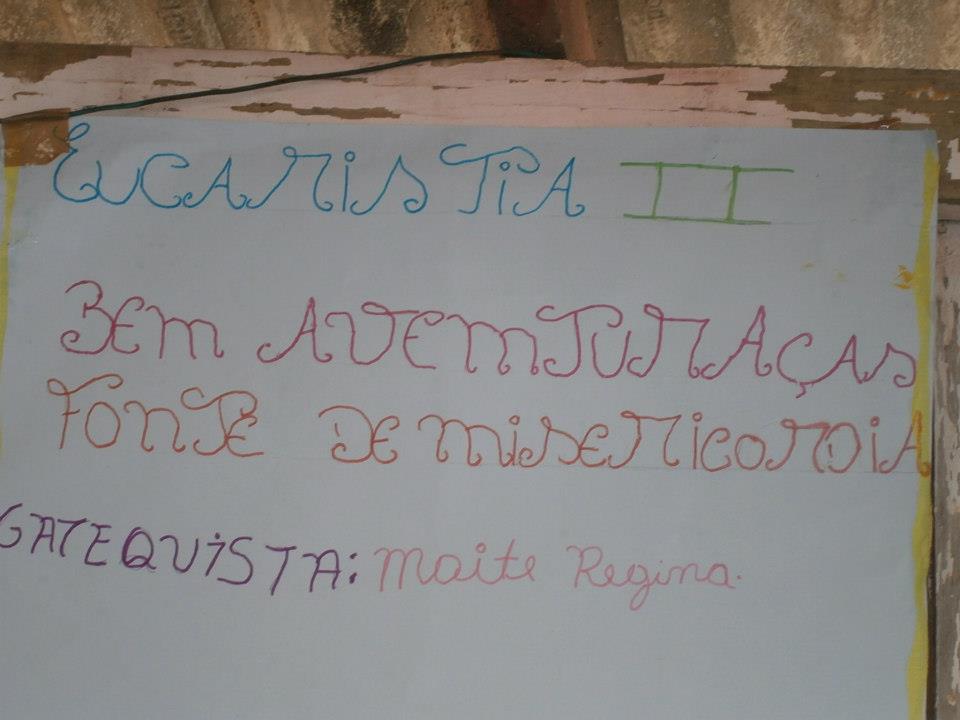 EUCARISTIA II
BEM AVEMTURAÇAS
FONTE DE MISERICORDIA
CATEQUISTA: Maite Regina.